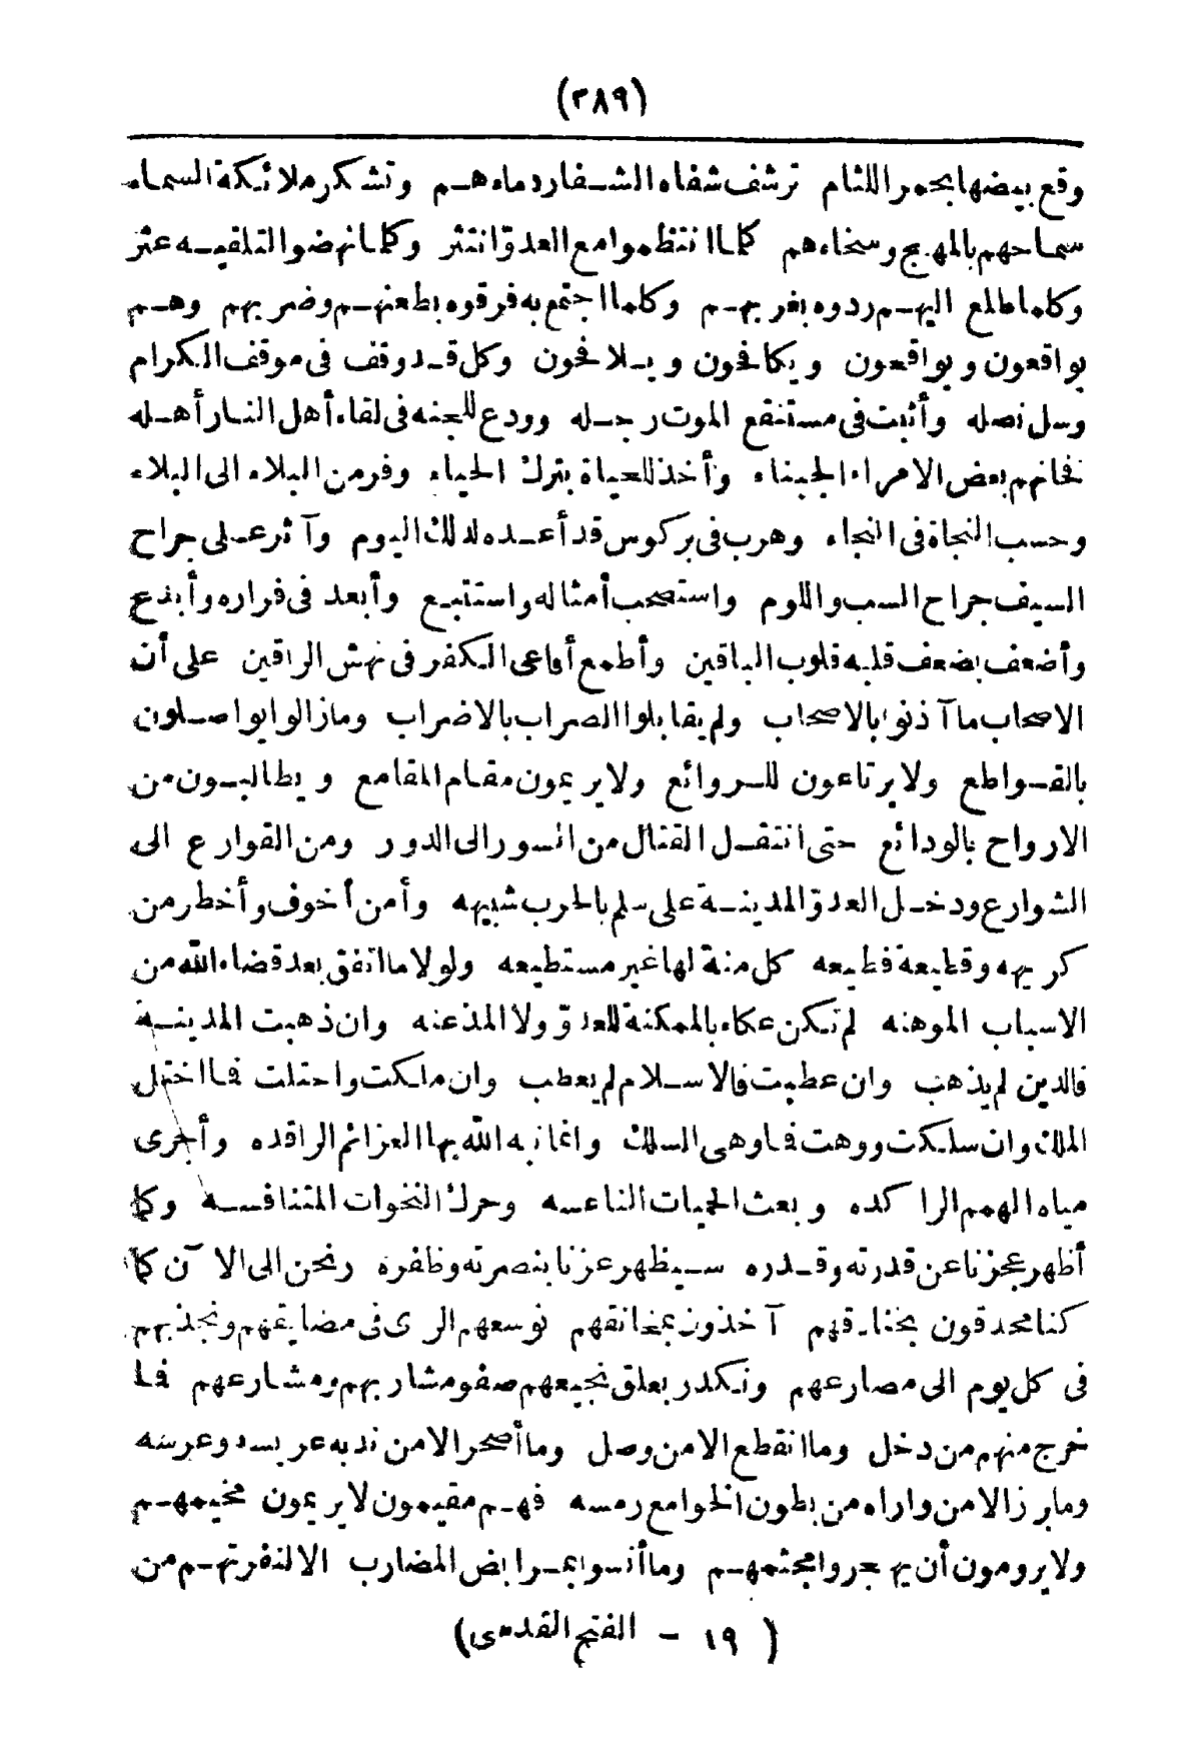 (٢٨٩)
وقع بيضها بحمر اللثام ترشف شفاه الشفار دماءهم وتشكر ملائكة السماء
سماحهم بالمهج وسخاءهم كلما انتظموا مع العدوّ انتثر وكلما نهضوا لتلقيه عثر
وكلما طلع اليهم ردوه بغربهم وكلما اجتمع به فرقوه بطعنهم وضربهم وهم
يواقعون ويواقعون ويكافحون ويلافحون وكل قد وقف فى موقف الكرام
وسل نصله وأثبت فى مستنقع الموت رجله وودع للجنه فى لقاء أهل النار أهله
فخانهم بعض الامراء الجبناء وأخذ للحياة بترك الحياء وفر من البلاء الى البلاء
وحسب النجاة فى النجاء وهرب فى بركوس قد أعده لذلك اليوم وآثر على جراح
السيف جراح السب واللوم واستصحب أمثاله واستتبع وأبعد فى فراره وأبدع
وأضعف بضعف قلبه قلوب الباقين وأطمع أفاعى الكفر فى نهش الراقين على أن
الاصحاب ما آذنوا بالاصحاب ولم يقابلوا الضراب بالاضراب ومازالوا يواصلون
بالقواطع ولا يرتاعون للروائع ولا يريمون مقام المقامع ويطالبون من
الارواح بالودائع حتى انتقل القتال من السور الى الدور ومن القوارع الى
الشوارع ودخل العدوّ المدينة على سلم بالحرب شبيهه وأمن أخوف وأخطر من
كريهه وقطيعة فظيعه كل منة لها غير مستطيعه ولولا ما اتفق بعد قضاء الله من
الاسباب الموهنه لم تكن عكاء بالممكنة للعدوّ ولا المذعنه وان ذهبت المدينة
فالدين لم يذهب وان عطبت فالاسلام لم يعطب وان ملكت واحتلت فما اختل
الملك وان سلكت ووهت فما وهى السلك وانما نبه الله بها العزائم الراقده وأجرى
مياه الهمم الراكده وبعث الحميات الناعسه وحرك النخوات المتنافسه وكما
أظهر عجزنا عن قدرته وقدره سيظهر عزنا بنصرته وظفره ونحن الى الآن كما
كنا محدقون بخنادقهم آخذون بمخانقهم نوسعهم الردى فى مضايقهم ونجذبهم
فى كل يوم الى مصارعهم ونكدر بعلق نجيعهم صفو مشاربهم ومشارعهم فما
خرج منهم من دخل وما انقطع الا من وصل وما أصحر الا من ندبه عريسه وعرسه
وما برز الا من واراه من بطون الخوامع رمسه فهم مقيمون لا يريمون مخيمهم
ولا يرومون أن يهجروا مجثمهم وما أنسوا بمرابض المضارب الا لنفرتهم من
(١٩ - الفتح القدسى)